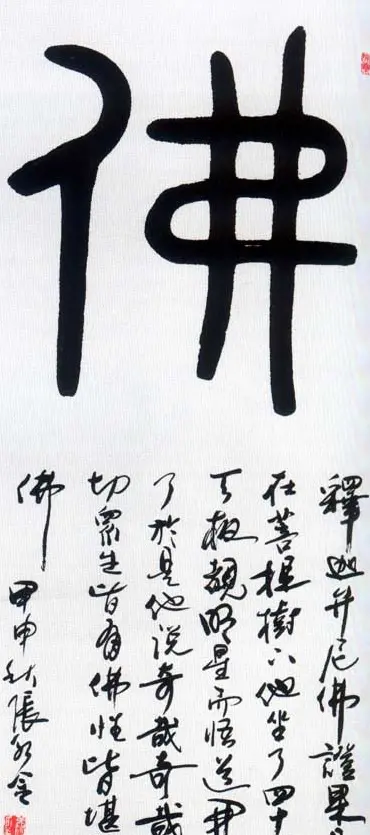 佛
釋迦牟尼佛證果
在菩提樹下他坐了四十
天夜覩明星而悟道
了於是他說奇哉奇哉
切眾生皆有佛性皆堪
佛 甲申秋張